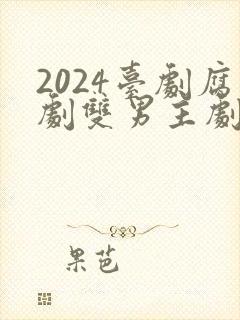 2024臺劇腐
劇雙男主劇
果芭